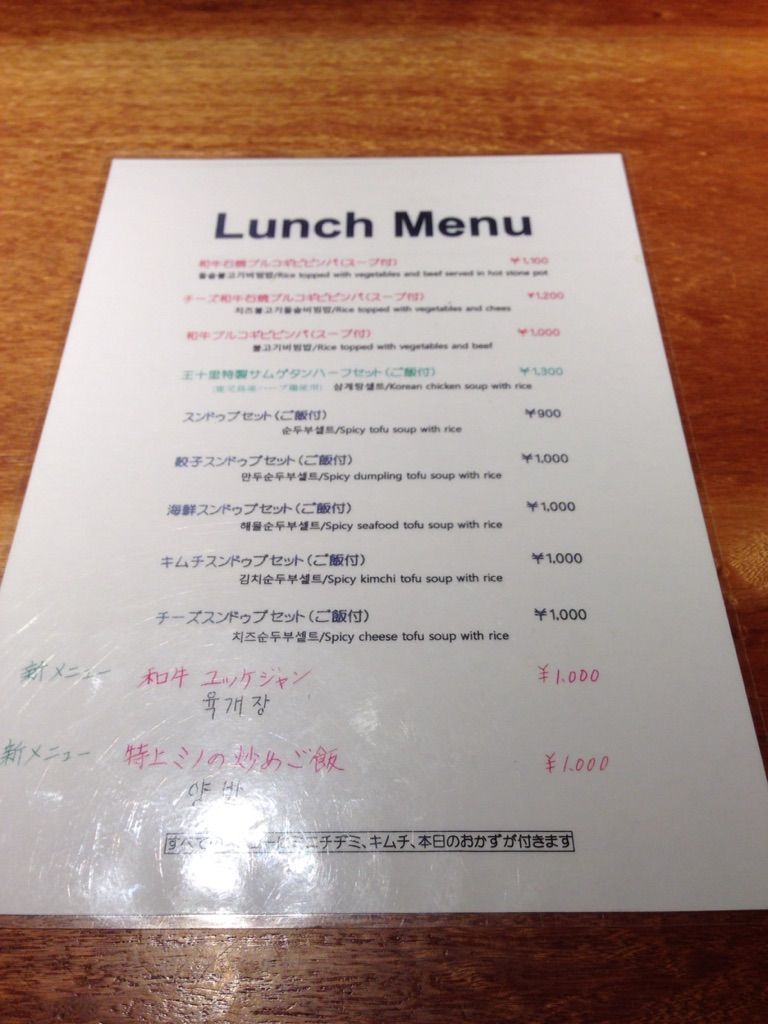 Lunch Menu
和牛石焼プルコギビビンバ(スープ付) ￥1,100
돌솥불고기비빔밥/Rice topped with vegetables and beef served in hot stone pot
チーズ和牛石焼プルコギビビンバ(スープ付) ￥1,200
치즈불고기돌솥비빔밥/Rice topped with vegetables and chees
和牛プルコギビビンバ(スープ付) ￥1,000
불고기비빔밥/Rice topped with vegetables and beef
王十里特製サムゲタンハーフセット(ご飯付) ￥1,300
삼계탕셀트/Korean chicken soup with rice
スンドゥブセット(ご飯付) ￥900
순두부셀트/Spicy tofu soup with rice
餃子スンドゥブセット(ご飯付) ￥1,000
만두순두부셀트/Spicy dumpling tofu soup with rice
海鮮スンドゥブセット(ご飯付) ￥1,000
해물순두부셀트/Spicy seafood tofu soup with rice
キムチスンドゥブセット(ご飯付) ￥1,000
김치순두부셀트/Spicy kimchi tofu soup with rice
チーズスンドゥブセット(ご飯付) ￥1,000
치즈순두부셀트/Spicy cheese tofu soup with rice
新メニュー 和牛 ユッケジャン ￥1.000
육개장
新メニュー 特上ミノの炒めご飯 ￥1.000
양밥
チヂミ、キムチ、本日のおかずが付きます